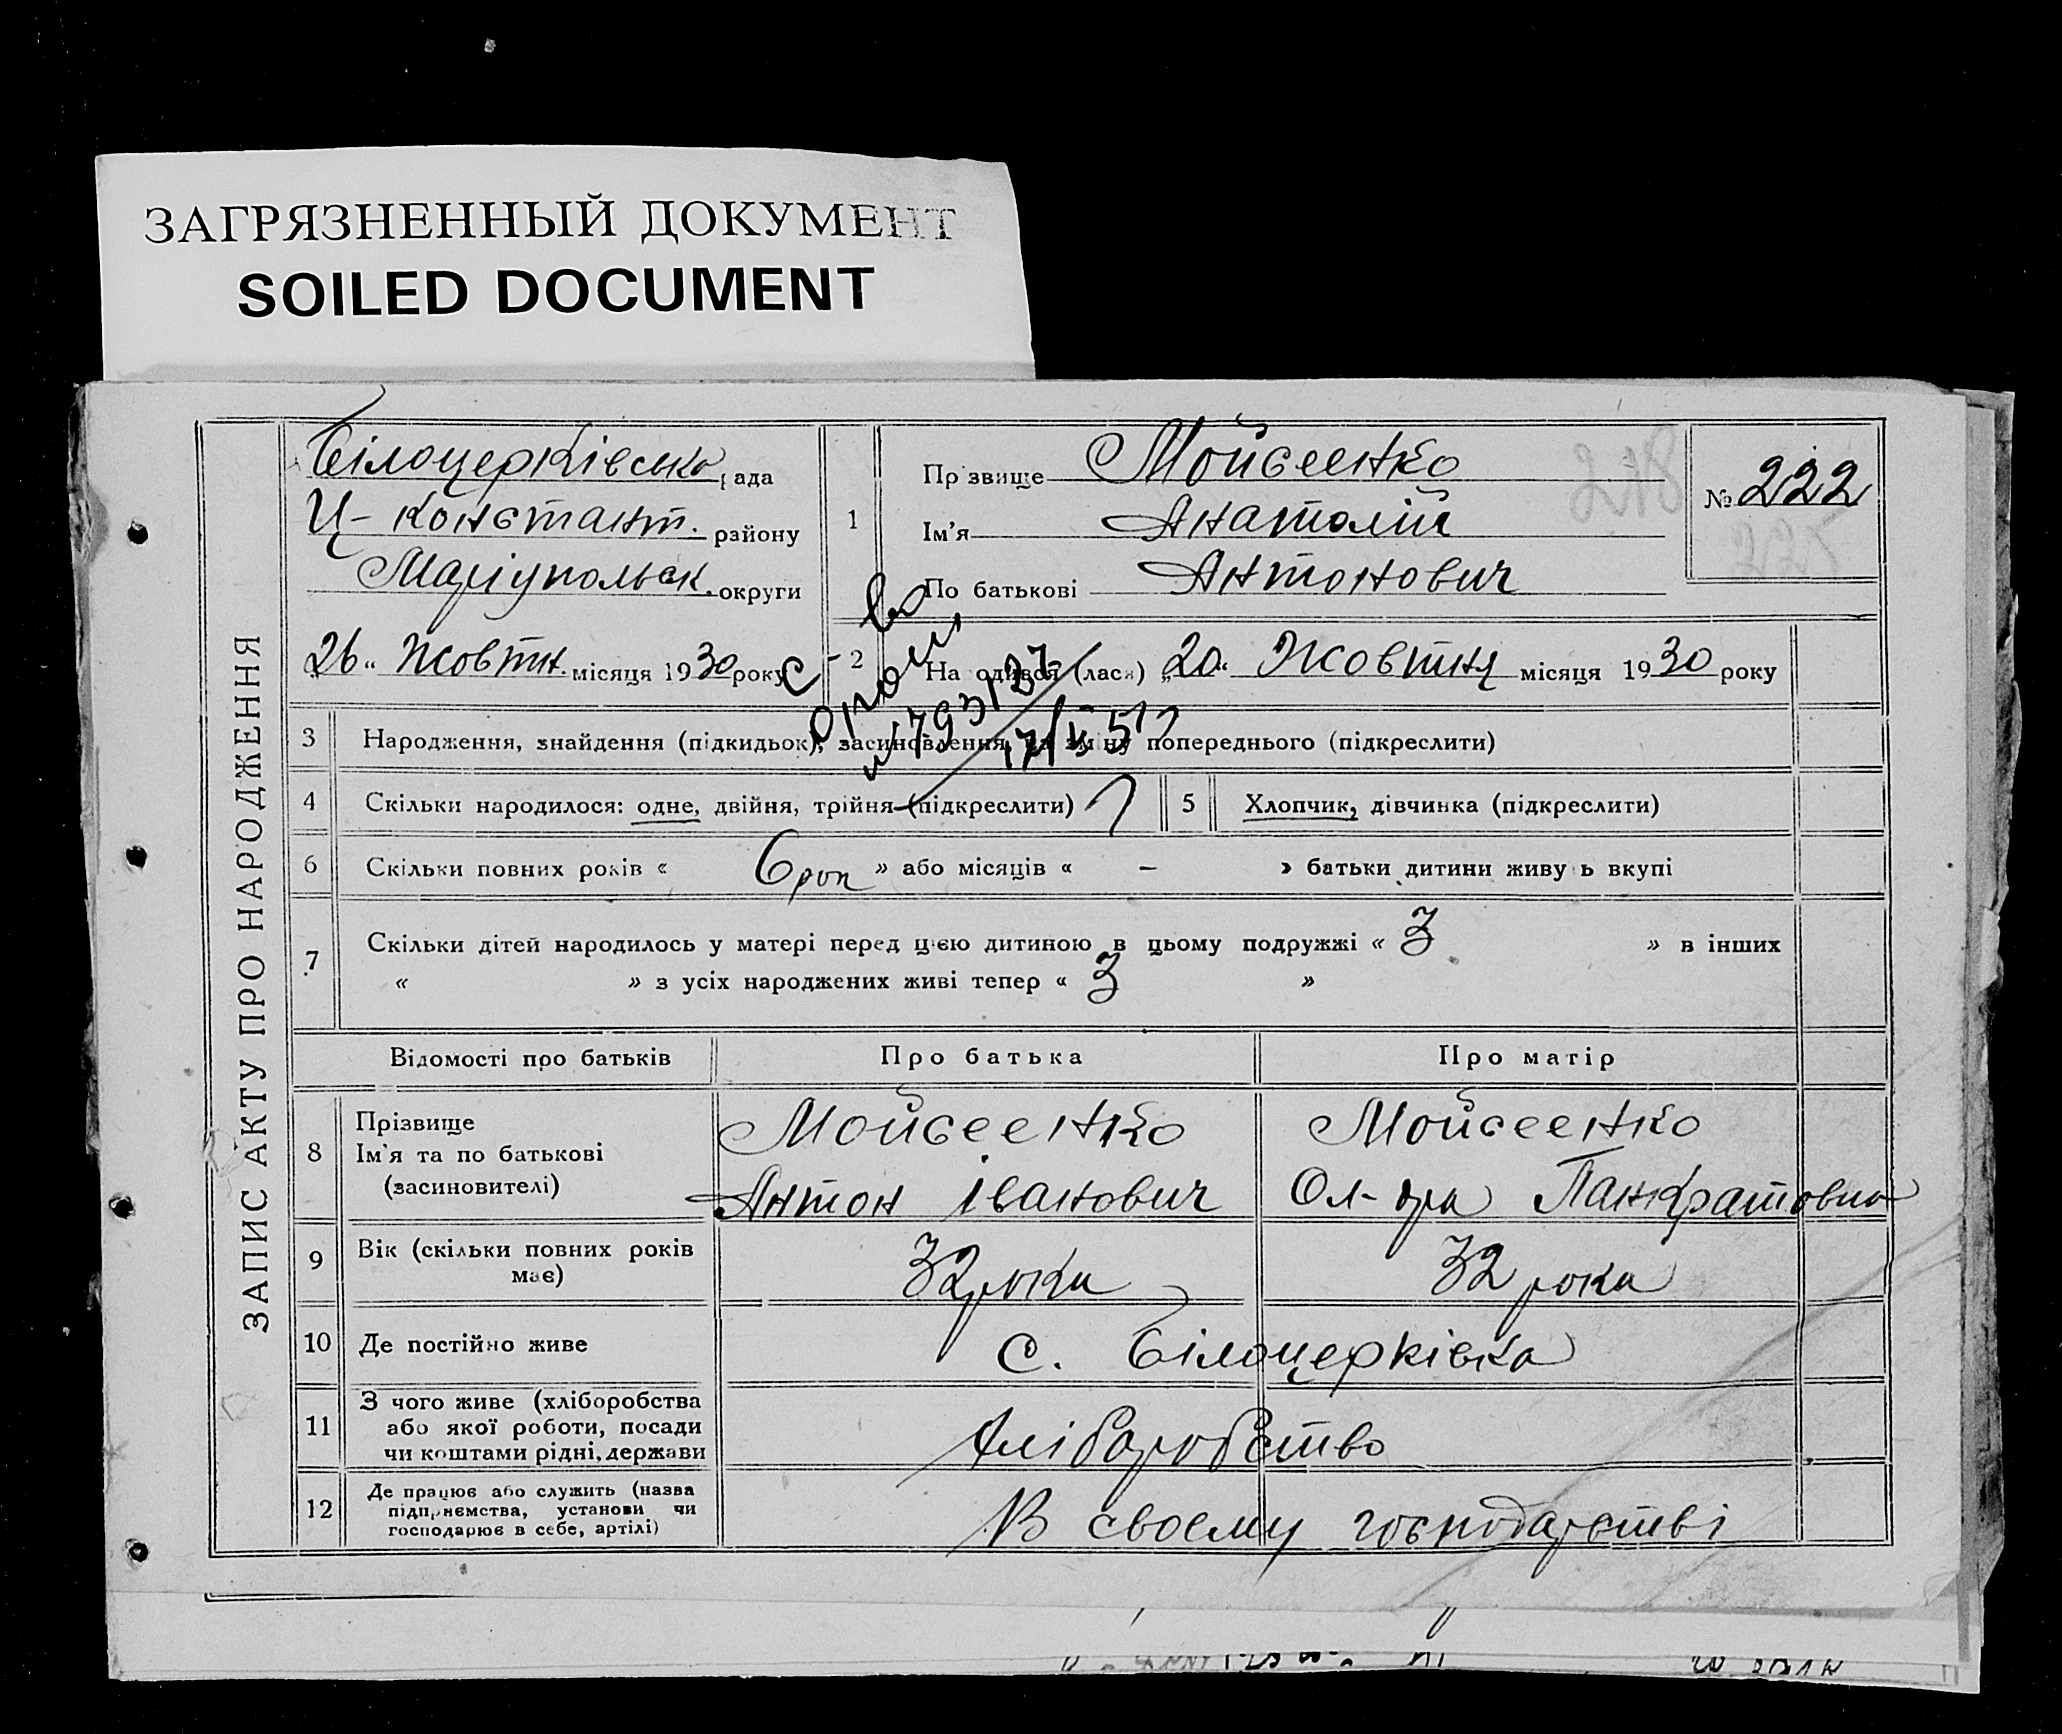 ЗАГРЯЗНЕННЫЙ ДОКУМЕНТ
SOILED DOCUMENT
ЗАПИС АКТУ ПРО НАРОДЖЕННЯ
Білоцерківська рада
Ц-Констант. району
Маріупольськ. округи
26 Жовтн. місяця 1930 року
1
Прізвище Мойсеенко
Ім'я Анатолій
По батькові Антонович
№ 222
2 На одився (лася) „20“ Жовтня місяця 1930 року
3 Народження, знайдення (підкидьок), засиновлення, на зміну попереднього (підкреслити)
4 Скільки народилося: одне, двійня, трійня (підкреслити) 1
5 Хлопчик, дівчинка (підкреслити)
6 Скільки повних років « 6 рок » або місяців « – » батьки дитини живу ь вкупі
7 Скільки дітей народилось у матері перед цією дитиною в цьому подружжі « 3 » в інших
« » з усіх народжених живі тепер « 3 »
Відомості про батьків Про батька Про матір
8 Прізвище
Ім'я та по батькові
(засиновителі)
Мойсеенко
Антон Іванович
Мойсеенко
Панкратовна
9 Вік (скільки повних років
має)
32 роки 32 роки
10 Де постійно живе с. Білоцерківка
11 З чого живе (хліборобства
або якої роботи, посади
чи коштами рідні, держави
Хліборобство
12 Де працює або служить (назва
підприємства, установи чи
господарює в себе, артілі)
В своему господарстві